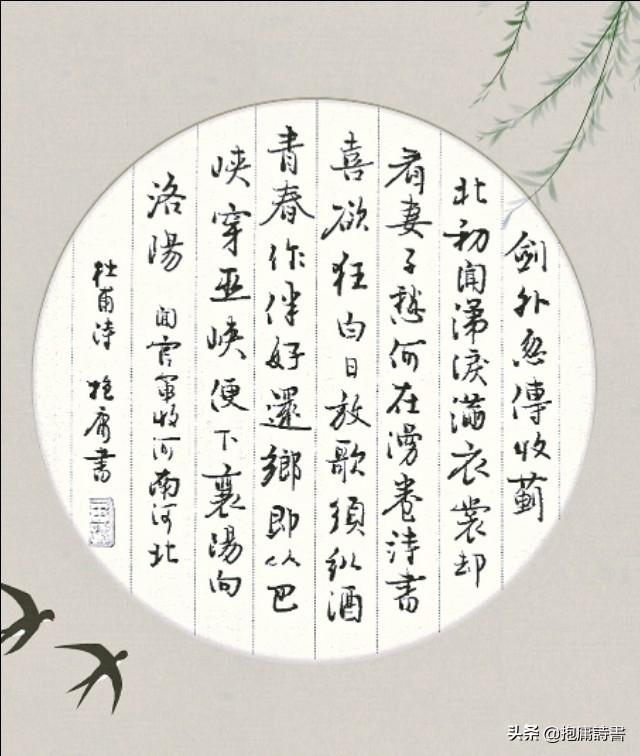 劍外忽傳收薊
北初聞涕淚滿衣裳却
看妻子愁何在漫卷詩書
喜欲狂白日放歌須纵酒
青春作伴好還鄉即从巴
峡穿巫峡便下襄陽向
洛陽 聞官軍收河南河北
杜甫詩 抱庸書
头条 @抱庸詩書